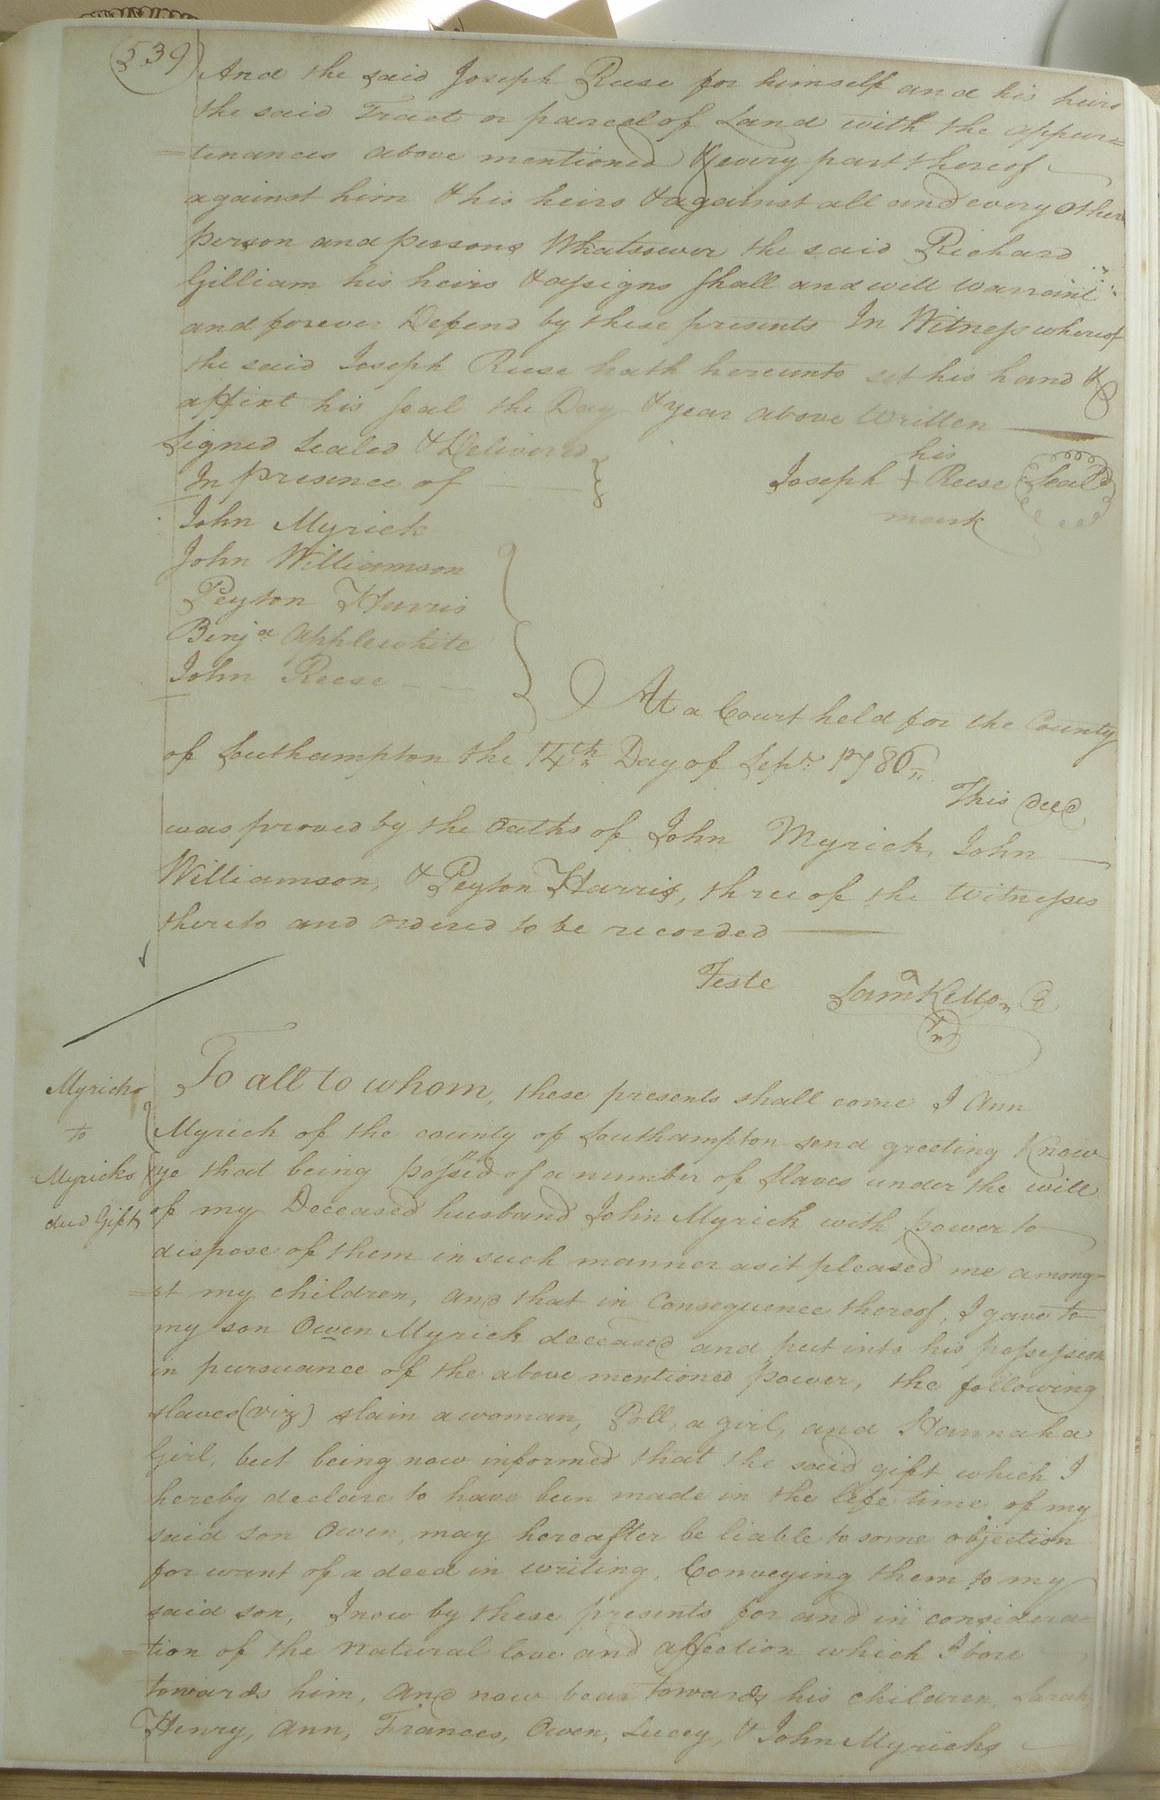 539
And the said Joseph Reese for himself and his heirs
the said Tract or parcel of Land with the appur=
=tenances above mentioned & every part thereof
against him & his heirs & against all and every other
person and persons Whatsoever the said Richard
Gilliam his heirs & assigns shall and will warrant
and forever Defend by these presents In Witness whereof
the said Joseph Reese hath hereunto set his hand &
affixt his seal the Day & year above Written
Signed Sealed & Delivered
In presence of
his
Joseph + Reese Seal
mark
John Myrick
John Williamson
Peyton Harris
Benja Applewhite
John Reese
At a Court held for the County
of Southampton the 14th Day of Sepr. 1786
This deed
was proved by the Oaths of John Myrick, John
Williamson, & Peyton Harris, three of the Witnesses
thereto and ordered to be recorded
Teste Saml Kello
Myrick
to
Myricks
deed Gift
To all to whom, these presents shall come I Ann
Myrick of the county of Southampton send greeting Know
ye that being possed of a number of slaves under the will
of my Deceased husband John Myrick with power to
dispose of them in such manner as it pleased me among=
=st my children, and that in Consequence thereof, I gave to
my son Owen Myrick deceased and put into his possession
in pursuance of the above mentioned power, the following
slaves (viz) a woman, Poll a girl, and Hannah a
Girl, but being now informed that the said gift which I
hereby declare to have been made in the life time of my
said son Owen, may hereafter be liable to some objection
for want of a deed in writing, Conveying them to my
said son, I now by these presents for and in considera
=tion of the natural love and affection which I bore
towards him, and now bear towards his children, Sarah,
Henry, Ann, Frances, Owen, Lucey, & John Myricks